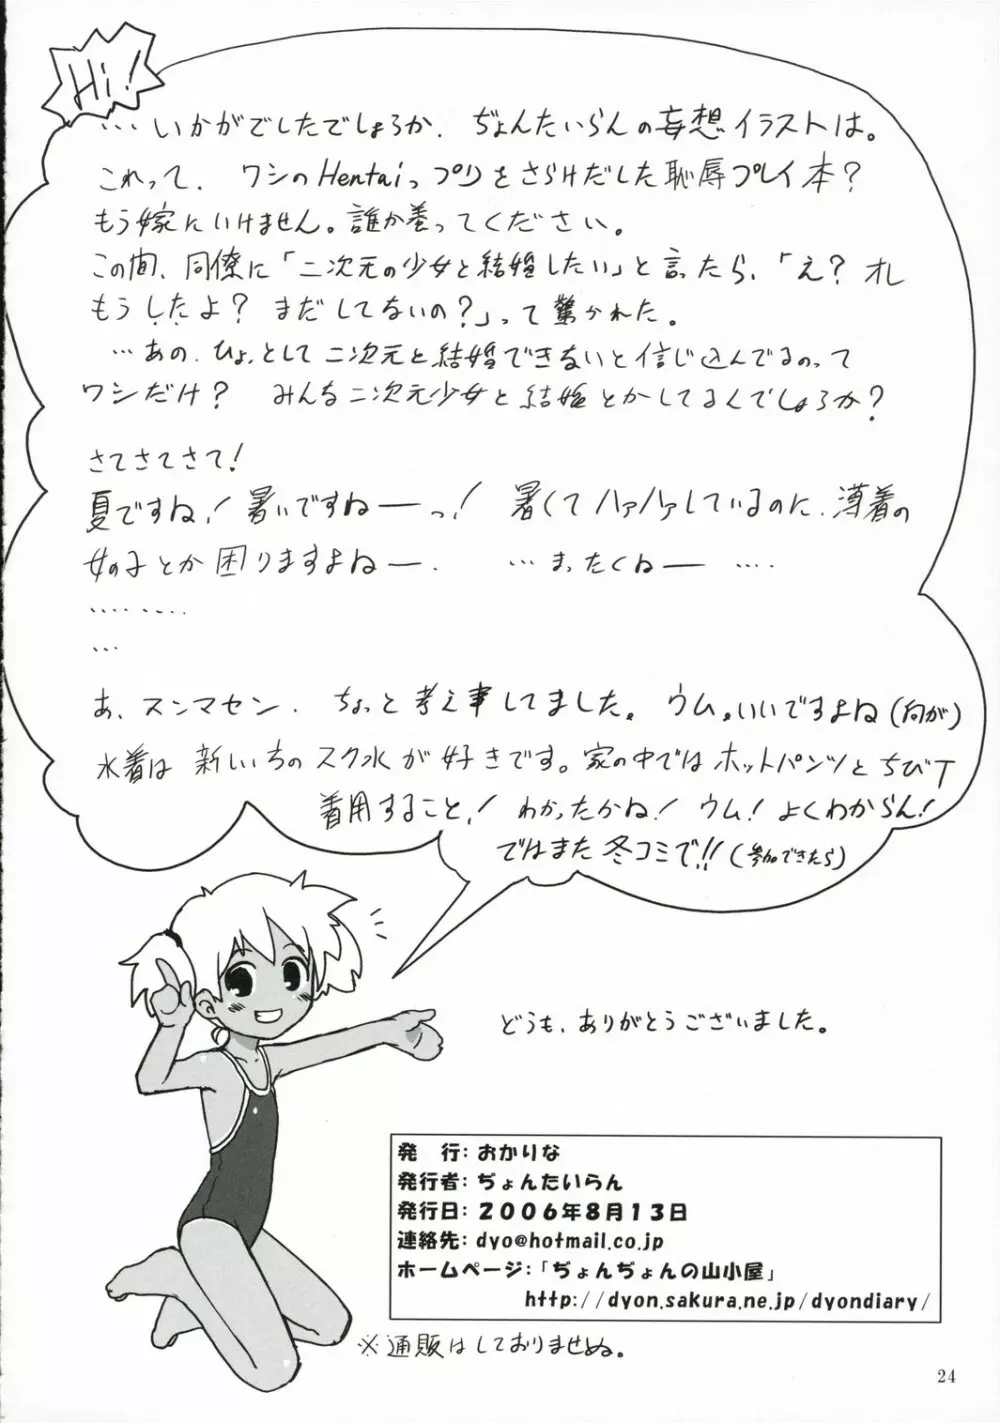 Hi!
…いかがでしたでしょろか. ぢょんたいらんの妄想イラストは。
これって. ワシのHentaiっプリをさらけだした恥辱プレイ本?
もう嫁にいけません。誰か巻ってください。
この間、同僚に「二次元の少女と結婚したい」と言ったら、「え? オレ
もうしたよ? まだしてないの?」って驚かれた。
…あの.ひょっとして二次元と結婚できないと信じ込んでるのって
ワシだけ? みんな二次元少女と結婚とかしてるんでしょろか?
さてさてさて!
夏ですね! 暑いですねーっ! 暑くてハァハァしているのに、薄着の
女の子とか困りますよねー. …まったくねー ….
………
…
あ、スンマセン. ちょっと考え事してました。ウム。いいですよね(何が)
水着は新しいちのスク水が好きです。家の中ではホットパンツとちびT
着用すること! わかったかね! ウム! よくわからん!
ではまた冬コミで!!(参加できたら)
どうも、ありがとうございました。
発 行: おかりな
発行者: ぢょんたいらん
発行日: 2006年8月13日
連絡先: dyo@hotmail.co.jp
ホームページ:「ぢょんぢょんの山小屋」
http://dyon.sakura.ne.jp/dyondiary/
※通販はしておりませぬ。
24